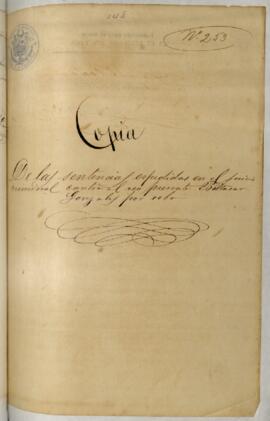 Nº 253
Copia
De las sentencias expedidas en el juicio
criminal contra el reo presente Baltazar
Gonzales por robo